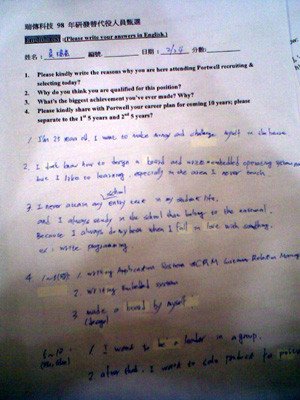 瑞傳科技 98 年研發替代役人員甄選
(Please write your answers in English.)
姓名: 編號: 日期: 2/24 分數:
1. Please kindly write the reasons why you are here attending Portwell recruiting &
selecting today?
2. Why do you think you are qualified for this position?
3. What's the biggest achievement you've ever made? Why?
4. Please kindly share with Portwell your career plan for coming 10 years; please
separate to the 1st 5 years and 2nd 5 years?
1. I'm 25 years old, I want to make money and challenge myself in the
2. I don't know how to design a board and embedded operating system
but I like to learning, especially in the area I never touch.
school
3. I never attain any entry test in my student life,
and I always study in the school than belong to the national.
Because I always do my best when I fall in love with something.
ex: write programming.
4. 1. writing Application Customer Relation
2. writing Embedded system
3. made a board by myself.
(design)
6~10: 1. I want to be a leader in a group.
2. after that, I want to sale product for